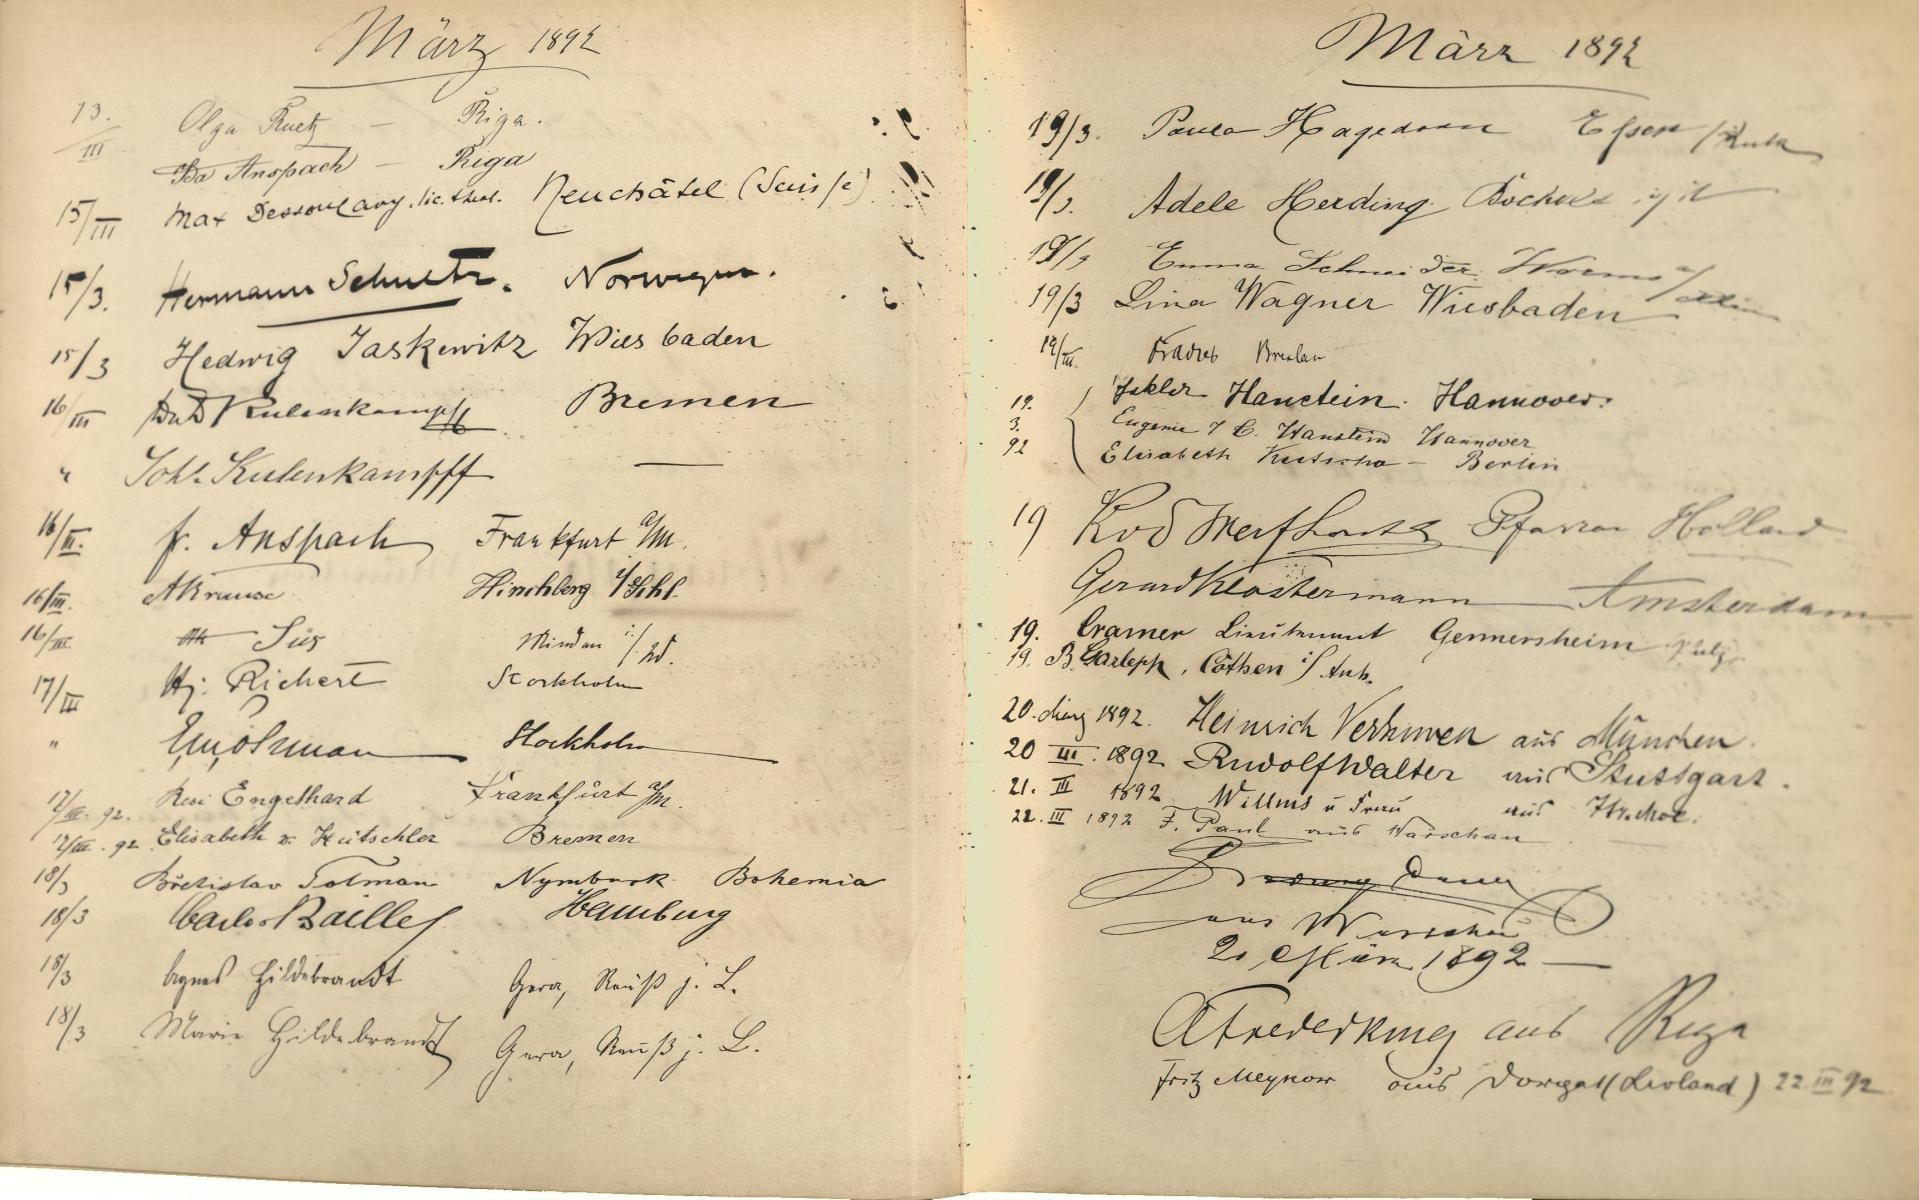 März 1892
13. III Olga Ruetz — Riga.
Ida Anspach — Riga
15/III Max Dessoulavy. lic. theol. Neuchâtel (Suisse)
15/3. Hermann Schultz. Norwegen.
15/3 Hedwig Jaskewitz Wiesbaden
16/III Kulenkampff Bremen
" Joh. Kulenkampff —
16/III. fr. Anspach Frankfurt a/M.
16/III. A Krause Hirschberg i/Schl.
16/III. Süs Minden i./W.
17/III Hj. Richert Stockholm
" Stockholm
17/III. 92. Resi Engelhard Frankfurt a/M.
17/III. 92. Elisabeth v. Bremen
18/3 Břetislav Tolman Nymburk Bohemia
18/3 Carlos Bailley Hamburg
18/3 Agnes Hildebrandt Gera, Reuß j. L.
18/3 Marie Hildebrandt Gera, Reuß j. L.
März 1892
19/3. Paula Hagedorn Essen / Ruhr
19/3. Adele Herding Bocholt i/W
19/3 Emma Schneider. Worms a/Rhein
19/3 Lina Wagner Wiesbaden
19/III. Breslau
19. Hanstein. Hannover.
3. Eugenie Hanstein Hannover
92 Elisabeth — Berlin
19 Holland
Gerard Klostermann Amsterdam
19. Cramer Lieutenant Germersheim Pfalz
19. B. Garlepp, Cöthen i/Anh.
20. März 1892. Heinrich Verhuven aus München.
20 III. 1892 Rudolf Walter aus Stuttgart.
21. III 1892 Willms u Frau aus
22. III 1892 F. Paul aus Warschau
aus Warschau
20 März 1892 —
aus Riga
Fritz Meykow aus Dorpat (Livland) 22. III 92